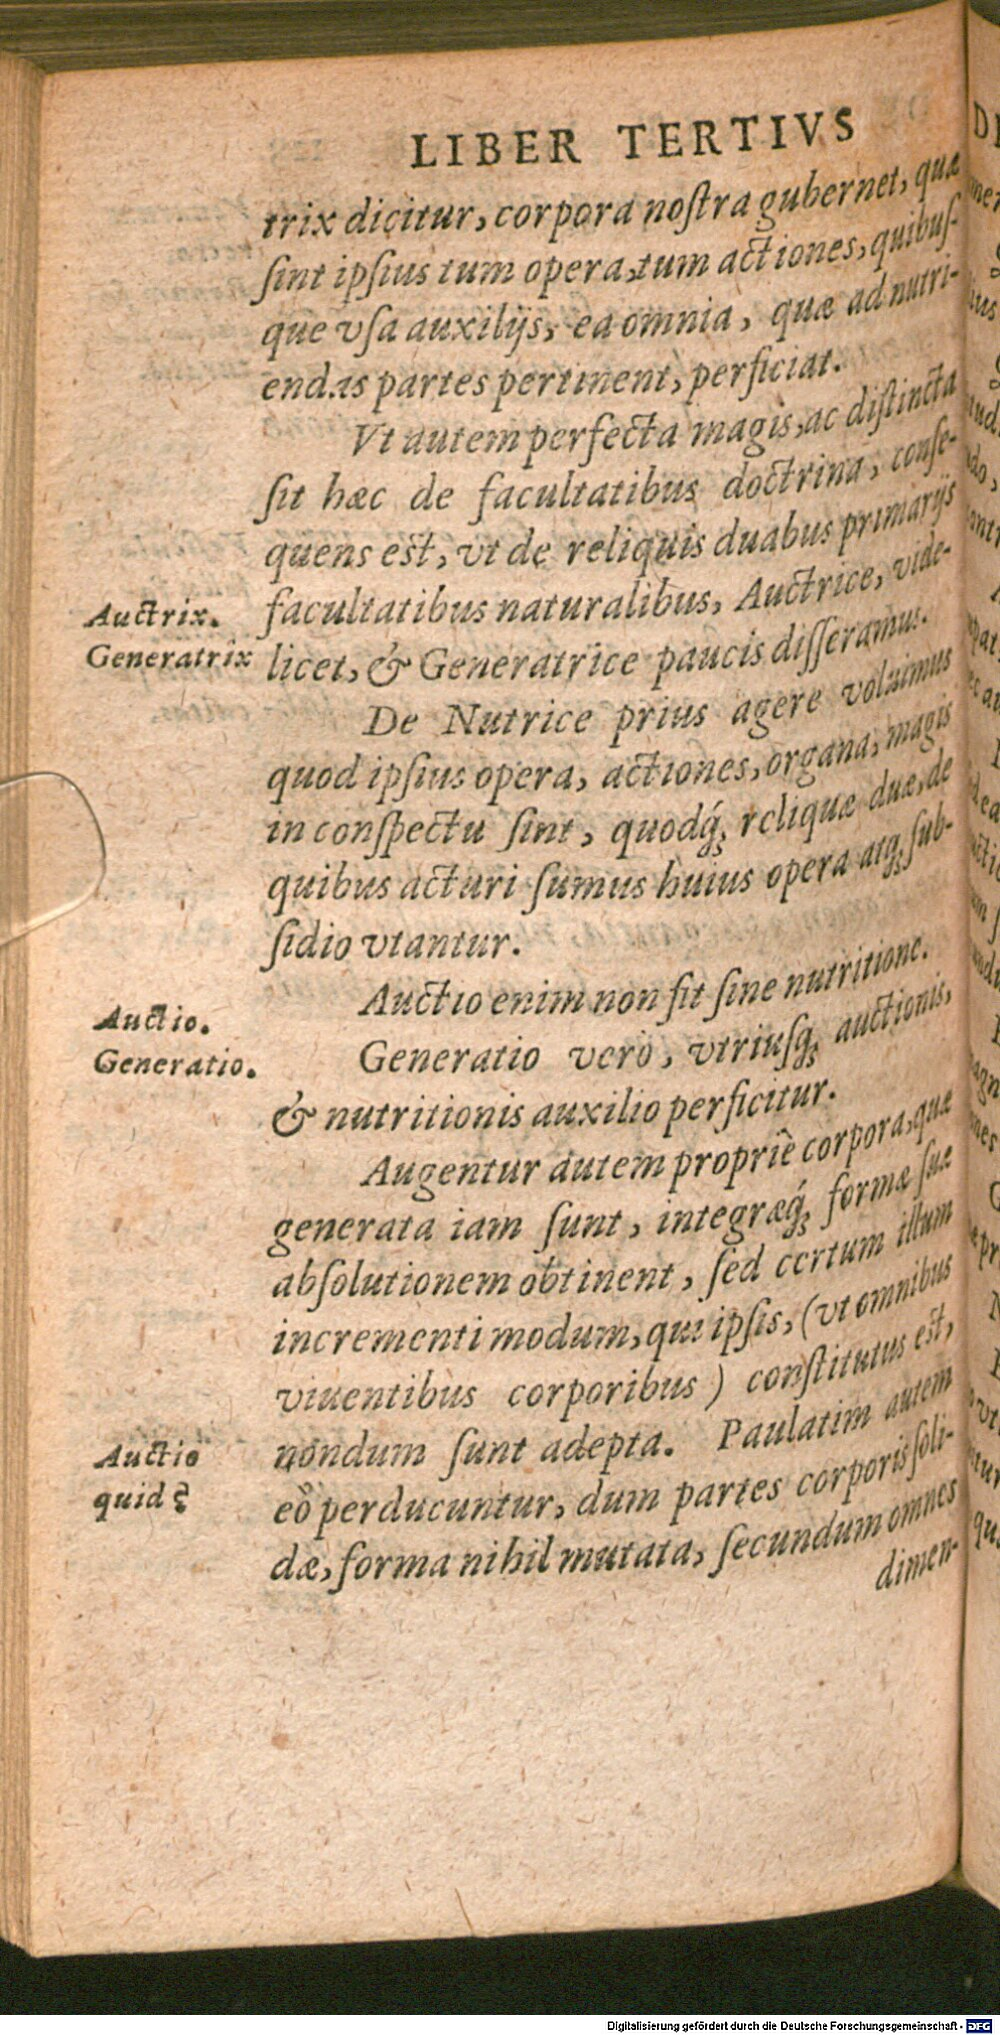 LIBER TERTIVS
trix dicitur, corpora noſtra gubernet, quæ
ſint ipſius tum opera, tum actiones, quibuſ-
que vſa auxilijs, ea omnia, quæ ad nutri-
endas partes pertinent, perficiat.
Vt autem perfecta magis, ac diſtincta
ſit hæc de facultatibus doctrina, conſe-
quens eſt, vt de reliquis duabus primarijs
Auctrix.
Generatrix
facultatibus naturalibus, Auctrice, vide-
licet, & Generatrice paucis diſſeramus.
De Nutrice prius agere voluimus
quod ipſius opera, actiones, organa, magis
in conſpectu ſint, quodq́; reliquæ duæ, de
quibus acturi ſumus huius opera atq; ſub-
ſidio vtantur.
Auctio enim non fit ſine nutritione.
Auctio.
Generatio.
Generatio verò, vtriuſq; auctionis,
& nutritionis auxilio perficitur.
Augentur autem propriè corpora, quæ
generata iam ſunt, integræq́; formæ ſuæ
abſolutionem obtinent, ſed certum illum
incrementi modum, qui ipſis, (vt omnibus
viuentibus corporibus) conſtitutus eſt,
Auctio
quid?
nondum ſunt adepta. Paulatim autem
eò perducuntur, dum partes corporis ſoli-
dæ, forma nihil mutata, ſecundum omnes
dimen-
Digitalisierung gefördert durch die Deutsche Forschungsgemeinschaft - DFG